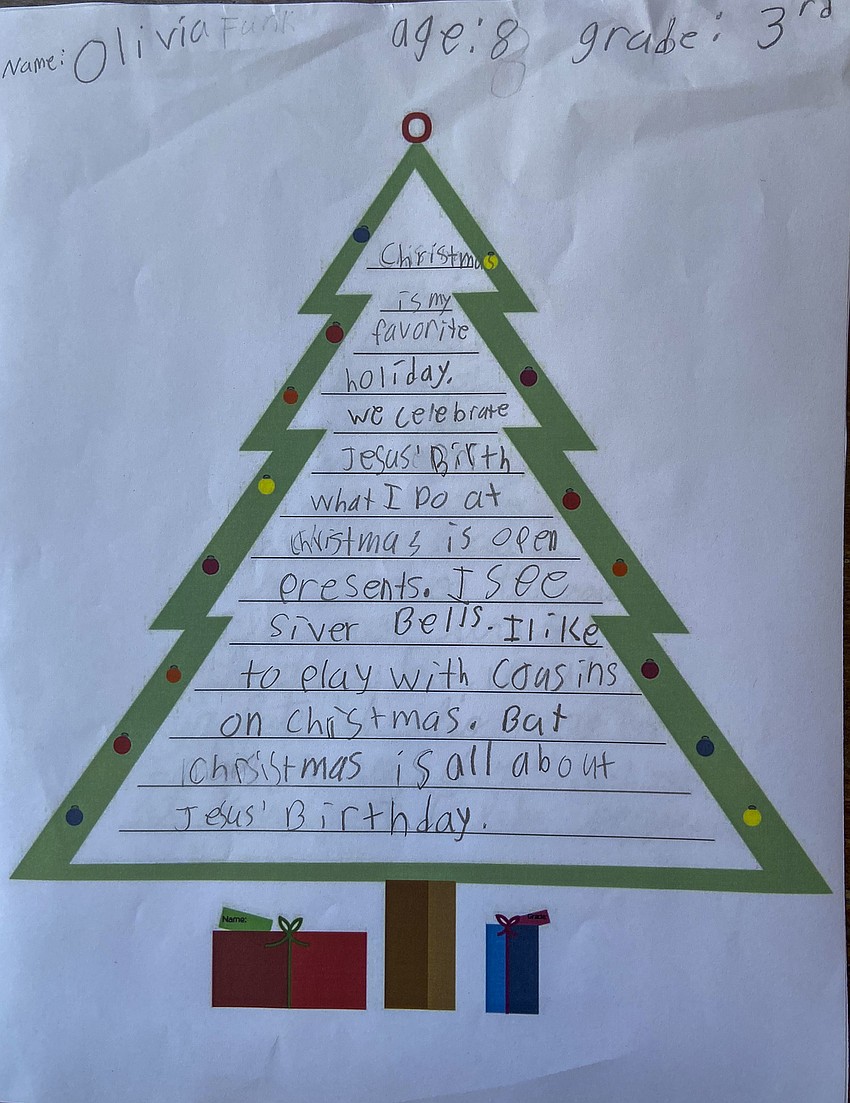 Name: Olivia Funk age: 8 grade: 3rd
Christmas
is my
favorite
holiday.
we celebrate
Jesus' Birth
what I Do at
christmas is open
presents. I see
Siver Bells. I like
to play with Cousins
on christmas. But
christmas is all about
Jesus' Birthday.
Name: Grade: